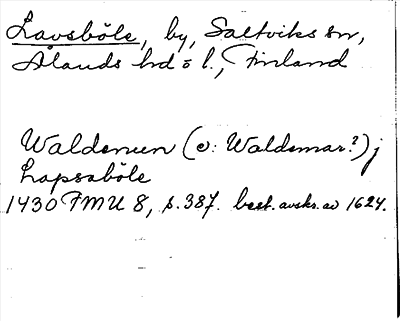 Lavsböle, by, Saltviks sn,
Ålands hd o l., Finland
Waldemun (ɔ: Waldemar?) j
Lapsaböle
1430 FMU 8, s. 387. best. avskr. av 1624.